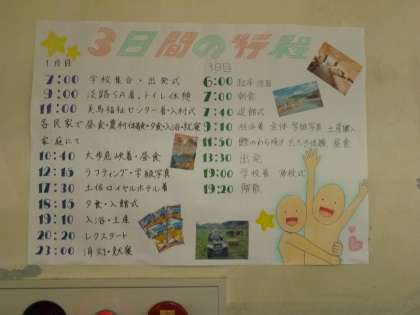 3日間の行程
1日目
7:00 学校集合・出発式
9:00 淡路SA着、トイレ休憩
11:00 美馬福祉センター着・入村式
各民家で 昼食・農村体験・夕食・入浴・就寝
家庭にて
10:40 大歩危峡着・昼食
12:15 ラフティング・学級写真
17:30 土佐ロイヤルホテル着
18:15 夕食・入館式
19:10 入浴・土産
20:20 レクスタート
23:00 消灯・就寝
3日目
6:00 起床・洗面
7:00 朝食
7:40 退館式
9:10 桂浜着 全体・学級写真 土産購入
11:50 鰹のわら焼きたたき体験 昼食
13:30 出発
19:00 学校着 帰校式
19:20 解散